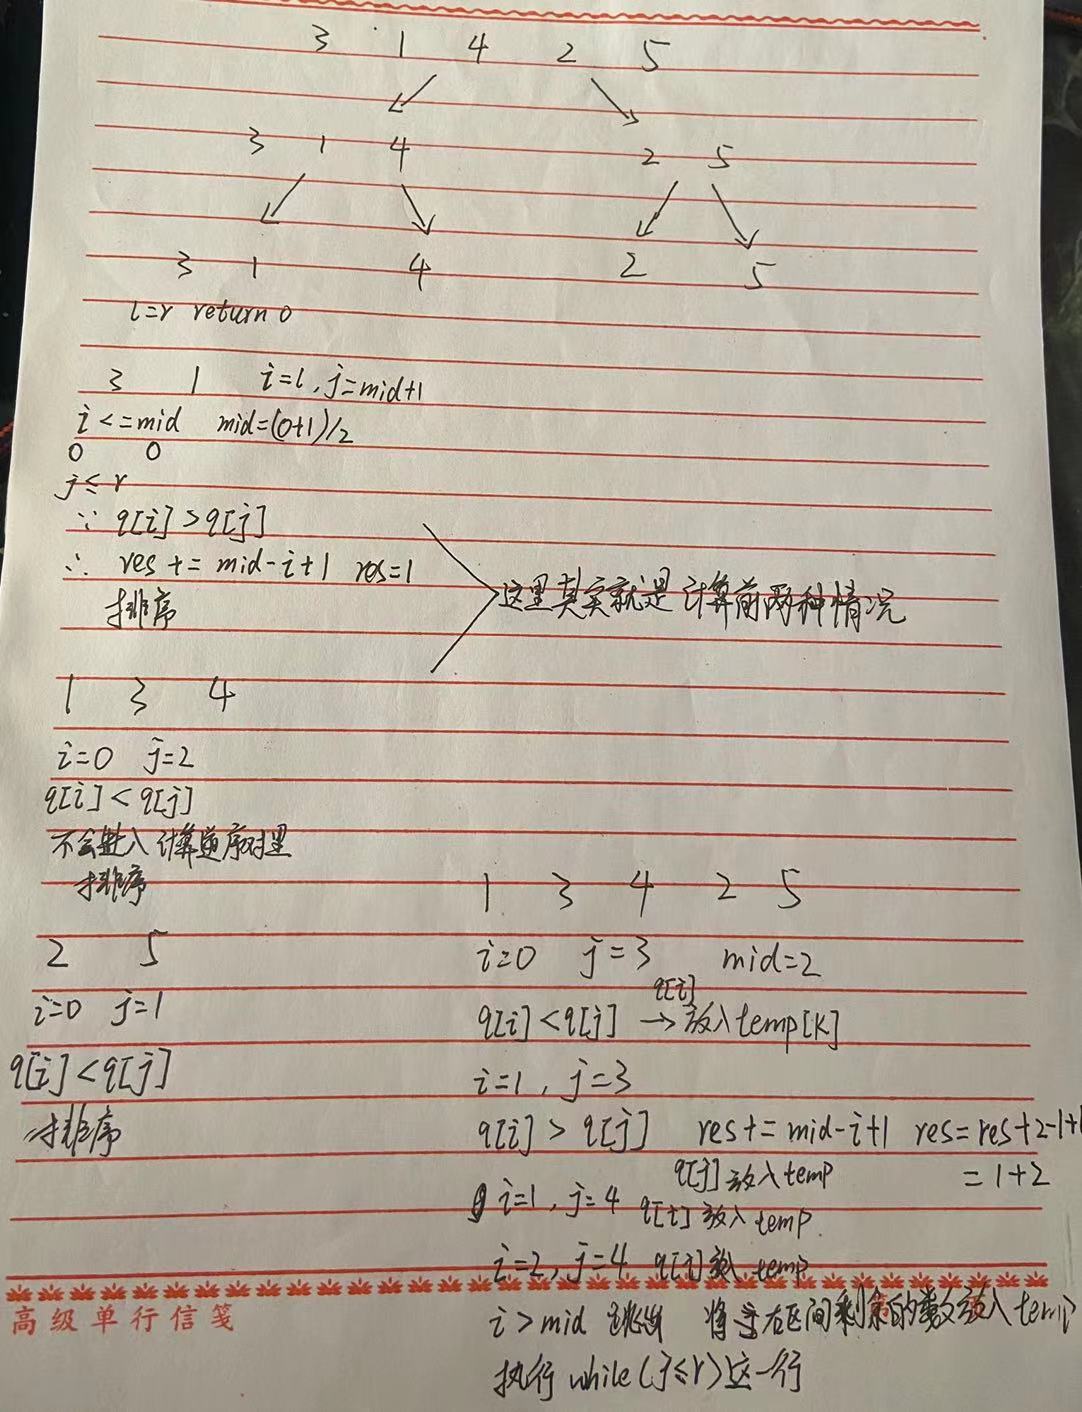 3 1 4 2 5
3 1 4 2 5
3 1 4 2 5
l=r return 0
3 1 i=l, j=mid+1
i<=mid mid=(0+1)/2
0 0
j≤r
∵ q[i]>q[j]
∴ res += mid-i+1 res=1
排序
这里其实就是计算前两种情况
1 3 4
i=0 j=2
q[i]<q[j]
不会进入计算逆序对里
排序
2 5
i=0 j=1
q[i]<q[j]
排序
1 3 4 2 5
i=0 j=3 mid=2
q[i]<q[j] → q[i]放入temp[k]
i=1, j=3
q[i]>q[j] res+=mid-i+1 res=res+2-1+1
q[j]放入temp =1+2
i=1, j=4 q[i]放入temp.
i=2, j=4 q[i]放入temp
i>mid 跳出 将右区间剩余的数放入temp
执行while(j≤r)这一行
高级单行信笺